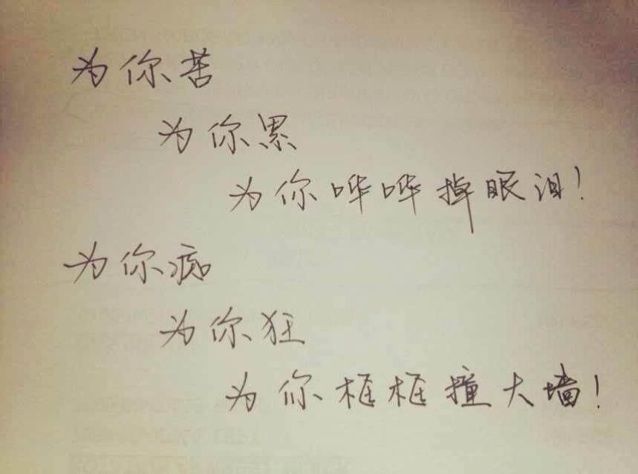 为你苦
为你累
为你哗哗掉眼泪!
为你痴
为你狂
为你框框撞大墙!